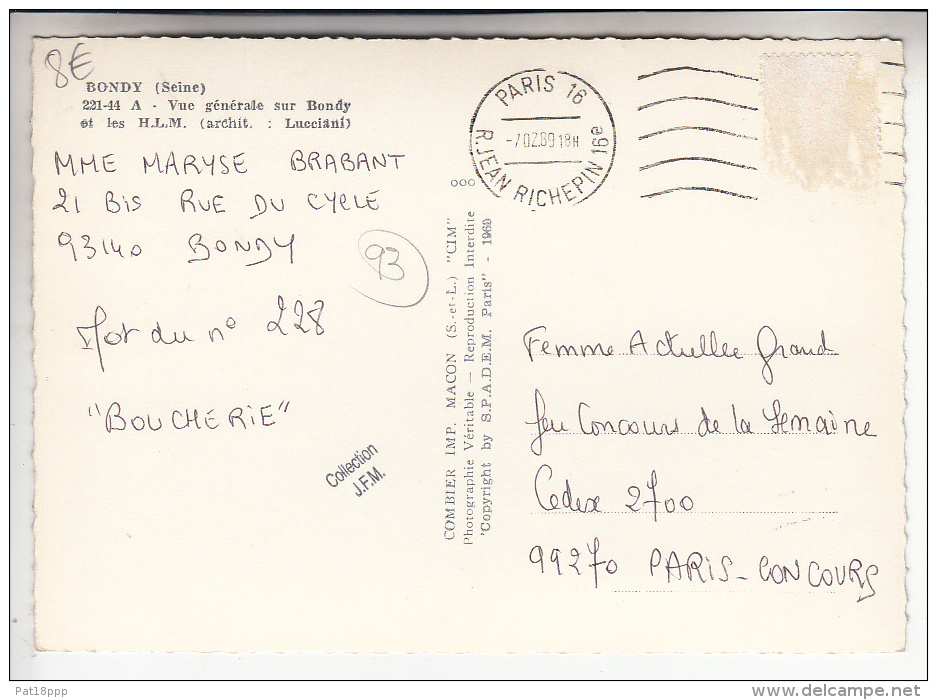 8€
BONDY (Seine)
221-44 A - Vue générale sur Bondy
et les H.L.M. (archit. : Lucciani)
MME MARYSE BRABANT
21 BIS RUE DU CYCLE
93140 BONDY
93
Mot du n° 228
"BOUCHERIE"
Collection
J.F.M.
PARIS 16
-7 02.89 18H
R.JEAN RICHEPIN 16e
000
COMBIER IMP. MACON (S.-et-L.) "CIM"
Photographie Véritable — Reproduction Interdite
"Copyright by S.P.A.D.E.M. Paris" - 1960
Femme Actuelle Grand
Jeu Concours de la Semaine
Cedex 2700
99270 PARIS-CONCOURS
Pat18ppp
delcampe.net